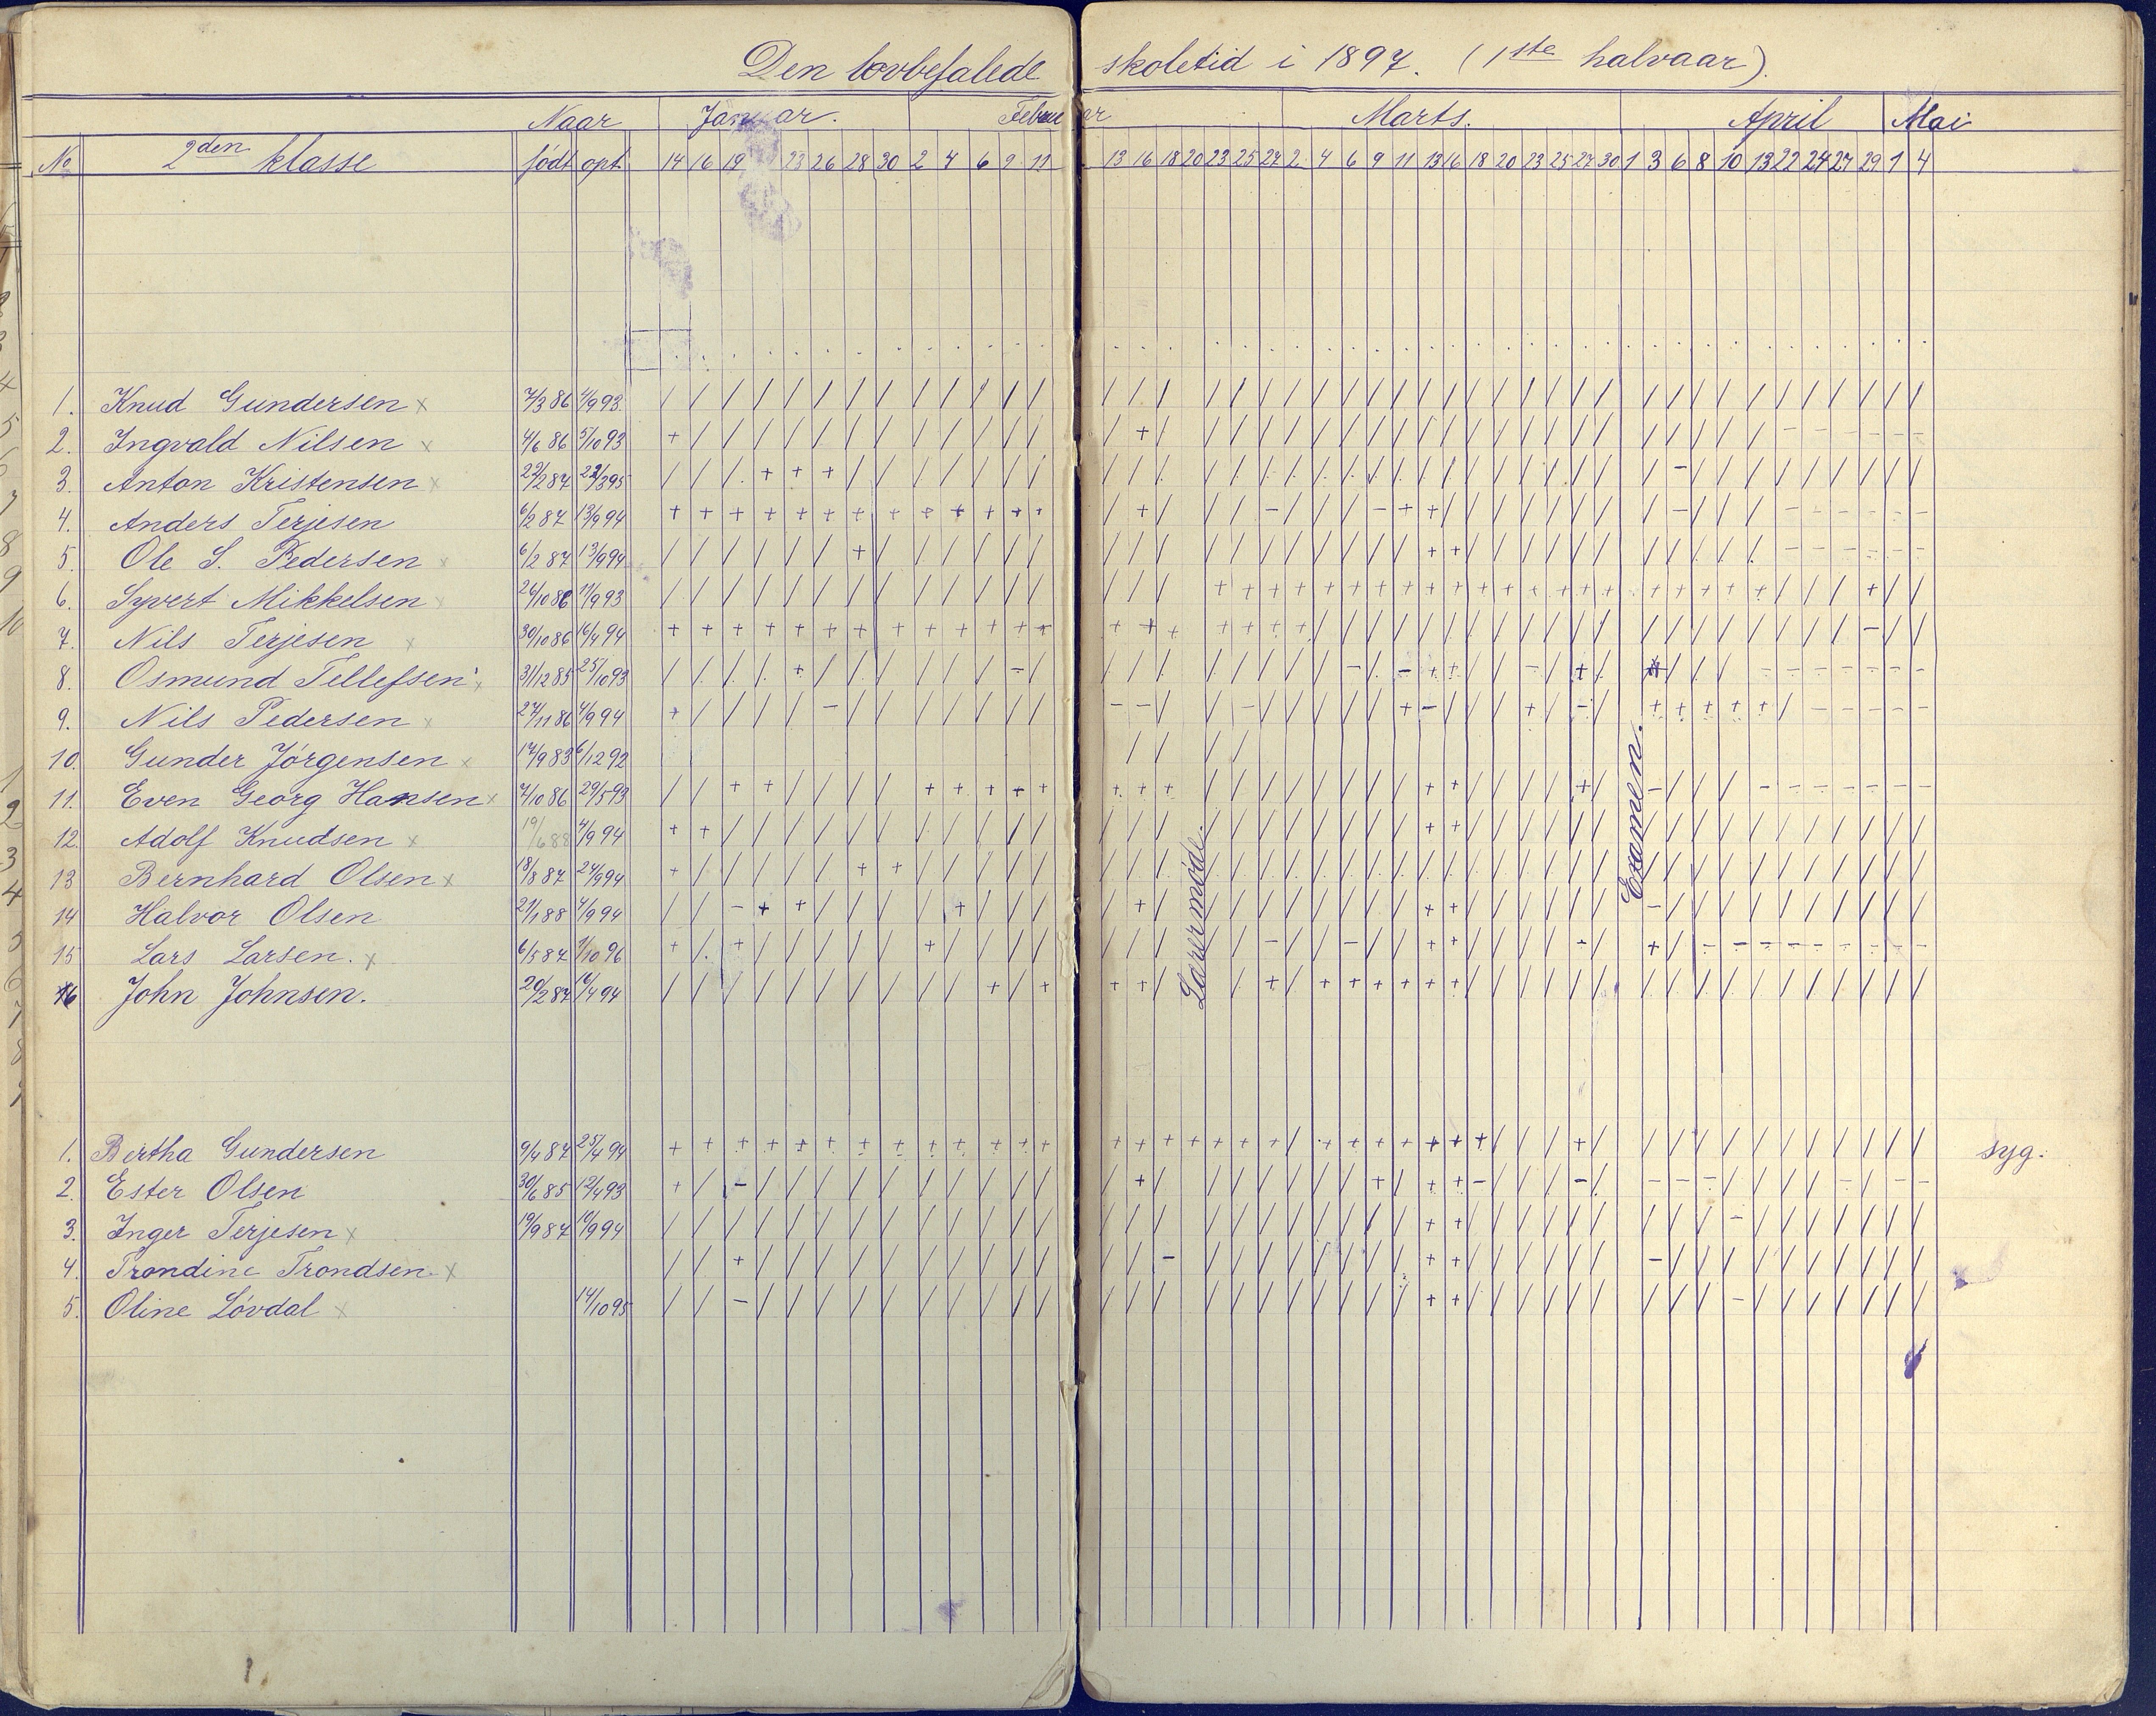 Den lovbefalede skoletid i 1897. (1ste halvaar).
Naar Januar. Februar Marts. April Mai
No 2den klasse født opt. 14 16 19 23 26 28 30 2 4 6 9 11 13 16 18 20 23 25 27 2 4 6 9 11 13 16 18 20 23 25 27 30 1 3 6 8 10 13 22 24 27 29 1 4
1. Knud Gundersen x 7/3 86 4/9 93 / / / / / / / / / / / / / / / / / / / / / / / / / / / / / / / / / / / / / / / / / /
2. Ingvald Nilsen x 4/6 86 5/10 93
3. Anton Kristensen x 22/2 87 22/3 95
4. Anders Terjesen 6/2 87 13/9 94
5. Ole S. Pedersen x 6/2 87 13/9 94
6. Syvert Mikkelsen x 26/10 86 11/9 93
7. Nils Terjesen x 30/10 86 16/4 94
8. Osmund Tellefsen x 31/12 85 25/10 93
9. Nils Pedersen x 27/11 86 4/9 94
10. Gunder Jørgensen x 17/9 83 6/12 92
11. Even Georg Hansen x 7/10 86 29/5 93
12. Adolf Knudsen x 19/6 88 4/9 94
13 Bernhard Olsen x 18/8 87 24/9 94
14 Halvor Olsen 21/1 88 4/9 94
15 Lars Larsen. x 6/5 87 1/10 96
16 John Johnsen. 20/2 87 16/4 94
Lærermøde.
Examen.
1. Bertha Gundersen 9/4 87 25/4 94 syg.
2. Ester Olsen 30/6 85 12/4 93
3. Inger Terjesen x 19/9 87 10/9 94
4. Trondine Trondsen x
5. Oline Løvdal x 14/10 95